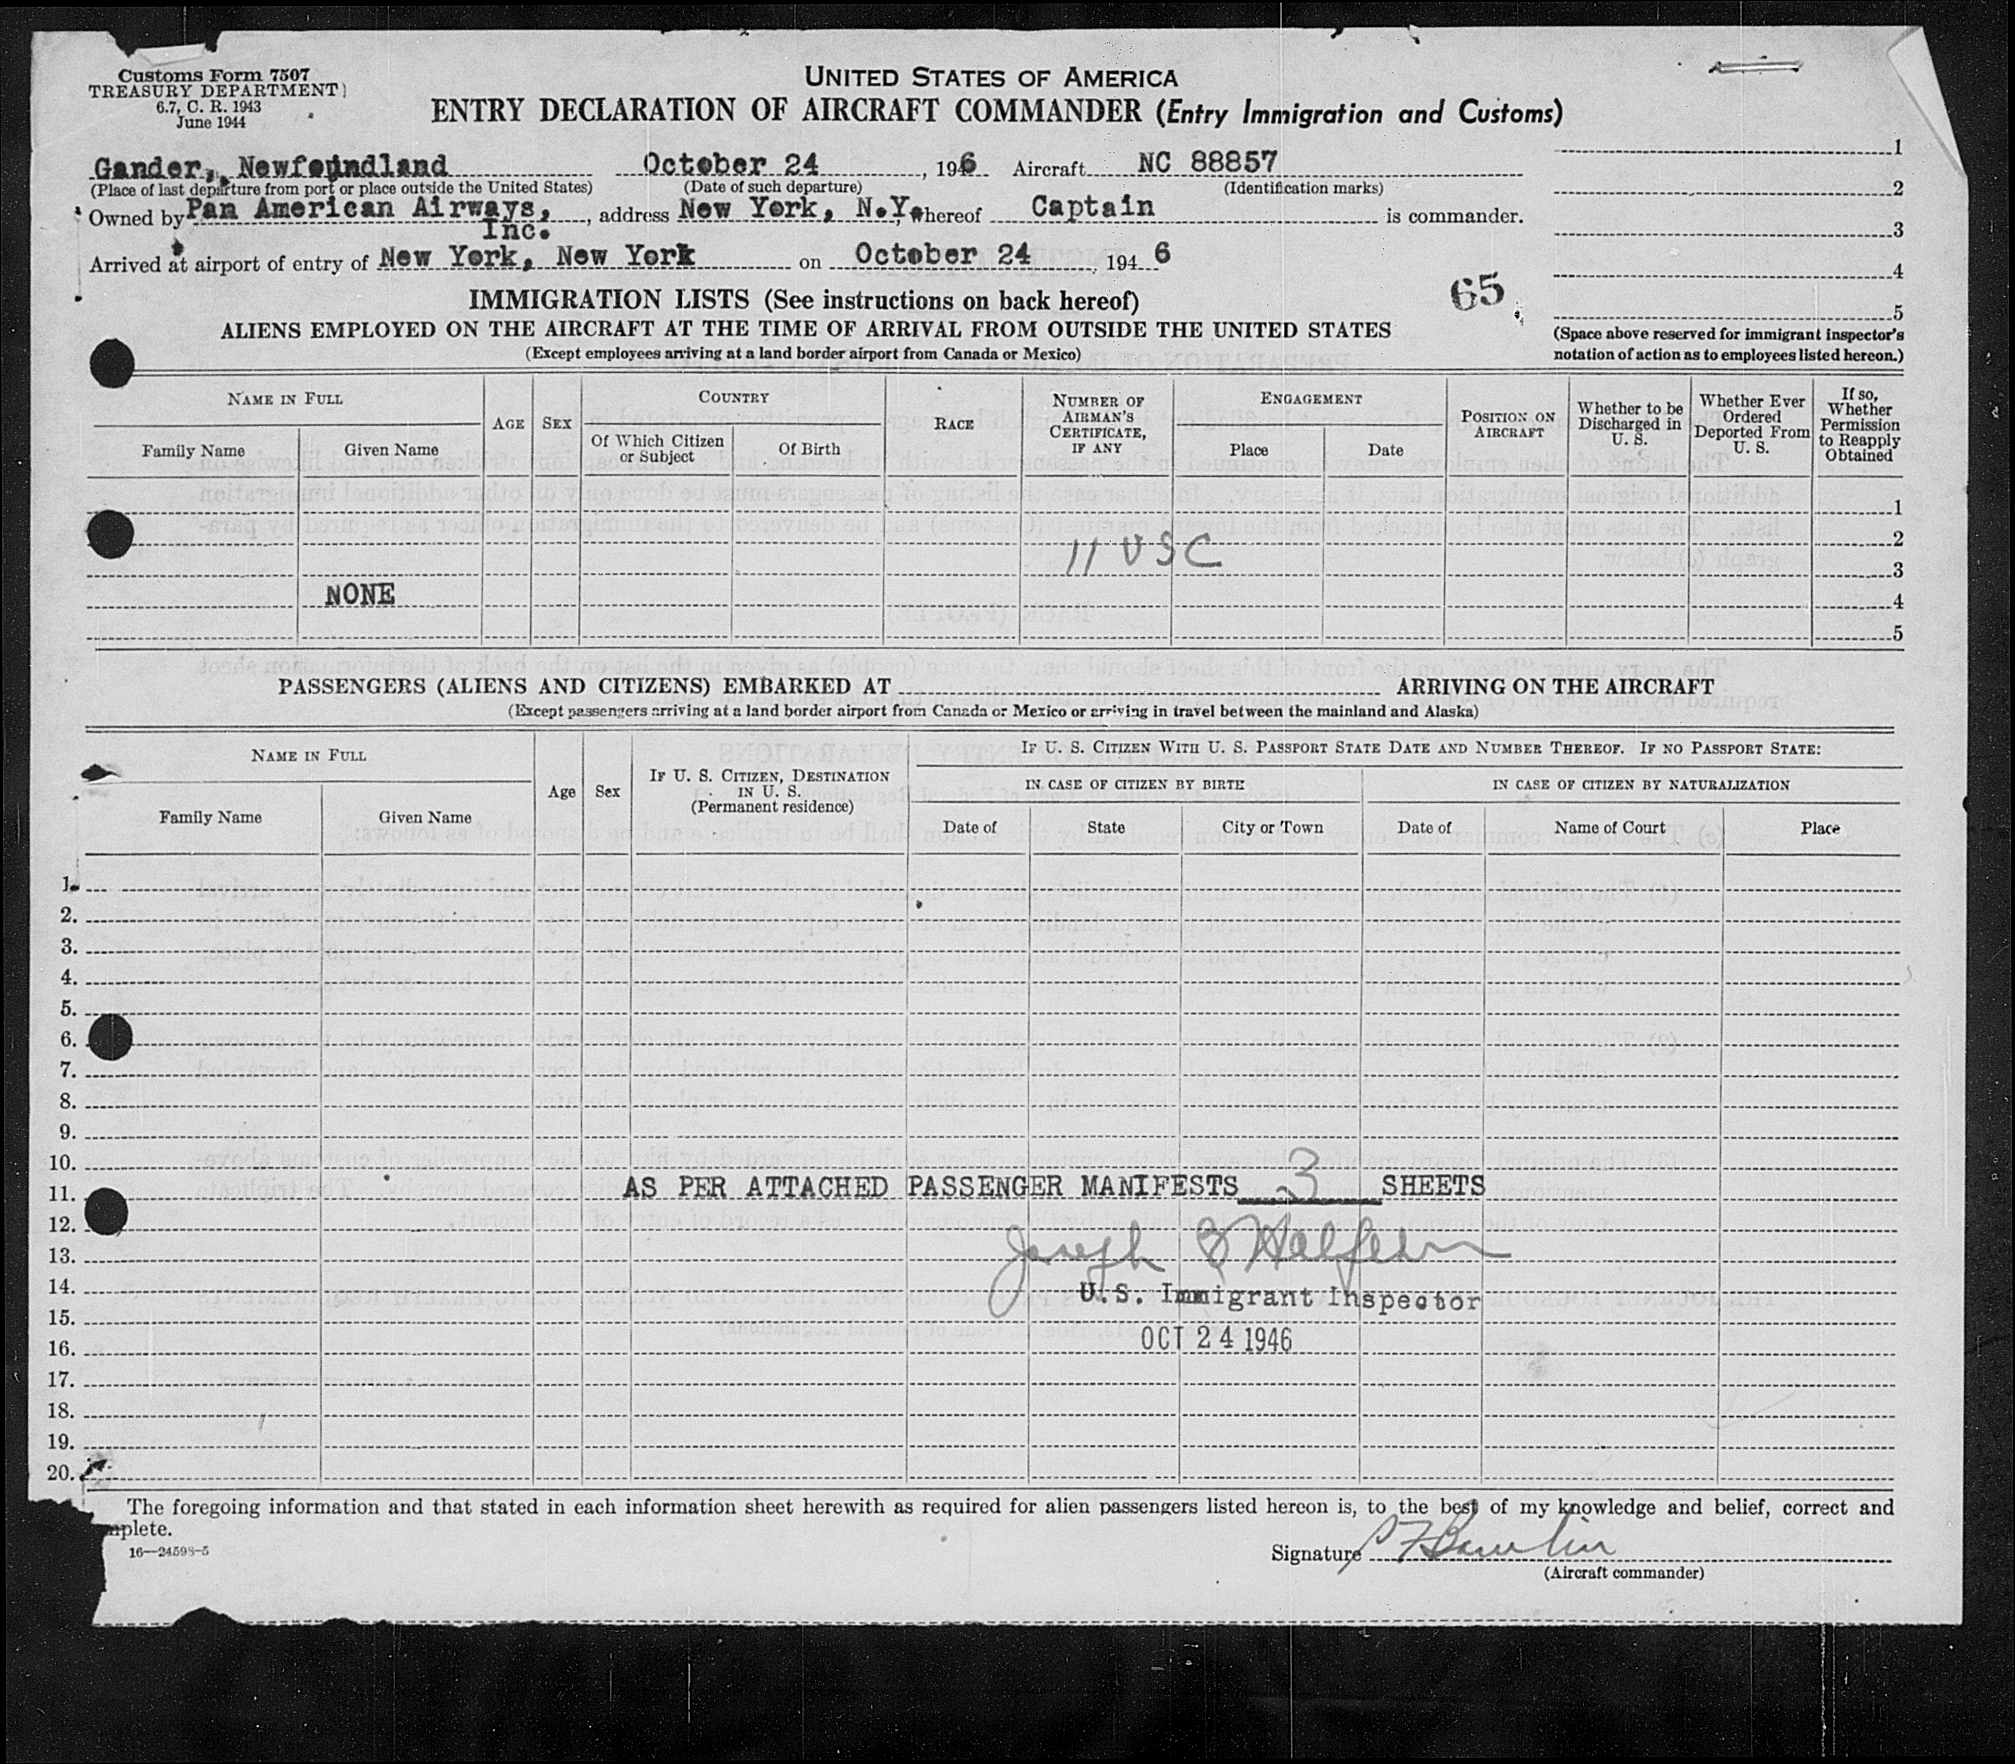 Customs Form 7507
TREASURY DEPARTMENT
6.7, C. R. 1943
June 1944
UNITED STATES OF AMERICA
ENTRY DECLARATION OF AIRCRAFT COMMANDER (Entry Immigration and Customs)
Gander, Newfoundland October 24, 1946 Aircraft NC 88857
(Place of last departure from port or place outside the United States) (Date of such departure) (Identification marks)
Owned by Pan American Airways, Inc. , address New York, N.Y. whereof Captain is commander.
Arrived at airport of entry of New York, New York on October 24, 1946
1
2
3
4
5
(Space above reserved for immigrant inspector's
notation of action as to employees listed hereon.)
65
IMMIGRATION LISTS (See instructions on back hereof)
ALIENS EMPLOYED ON THE AIRCRAFT AT THE TIME OF ARRIVAL FROM OUTSIDE THE UNITED STATES
(Except employees arriving at a land border airport from Canada or Mexico)
NAME IN FULL
Family Name
Given Name
AGE
SEX
COUNTRY
Of Which Citizen
or Subject
Of Birth
RACE
NUMBER OF
AIRMAN'S
CERTIFICATE,
IF ANY
ENGAGEMENT
Place
Date
POSITION ON
AIRCRAFT
Whether to be
Discharged in
U. S.
Whether Ever
Ordered
Deported From
U. S.
If so,
Whether
Permission
to Reapply
Obtained
1
2
11 USC
3
NONE
4
5
PASSENGERS (ALIENS AND CITIZENS) EMBARKED AT ARRIVING ON THE AIRCRAFT
(Except passengers arriving at a land border airport from Canada or Mexico or arriving in travel between the mainland and Alaska)
NAME IN FULL
Family Name
Given Name
Age
Sex
IF U. S. CITIZEN, DESTINATION
IN U. S.
(Permanent residence)
IF U. S. CITIZEN WITH U. S. PASSPORT STATE DATE AND NUMBER THEREOF. IF NO PASSPORT STATE:
IN CASE OF CITIZEN BY BIRTH
Date of
State
City or Town
IN CASE OF CITIZEN BY NATURALIZATION
Date of
Name of Court
Place
1.
2.
3.
4.
5.
6.
7.
8.
9.
10.
11. AS PER ATTACHED PASSENGER MANIFESTS 3 SHEETS
12.
13. Joseph
14. U.S. Immigrant Inspector
15.
16. OCT 24 1946
17.
18.
19.
20.
The foregoing information and that stated in each information sheet herewith as required for alien passengers listed hereon is, to the best of my knowledge and belief, correct and
mplete.
16—24598-5
Signature
(Aircraft commander)